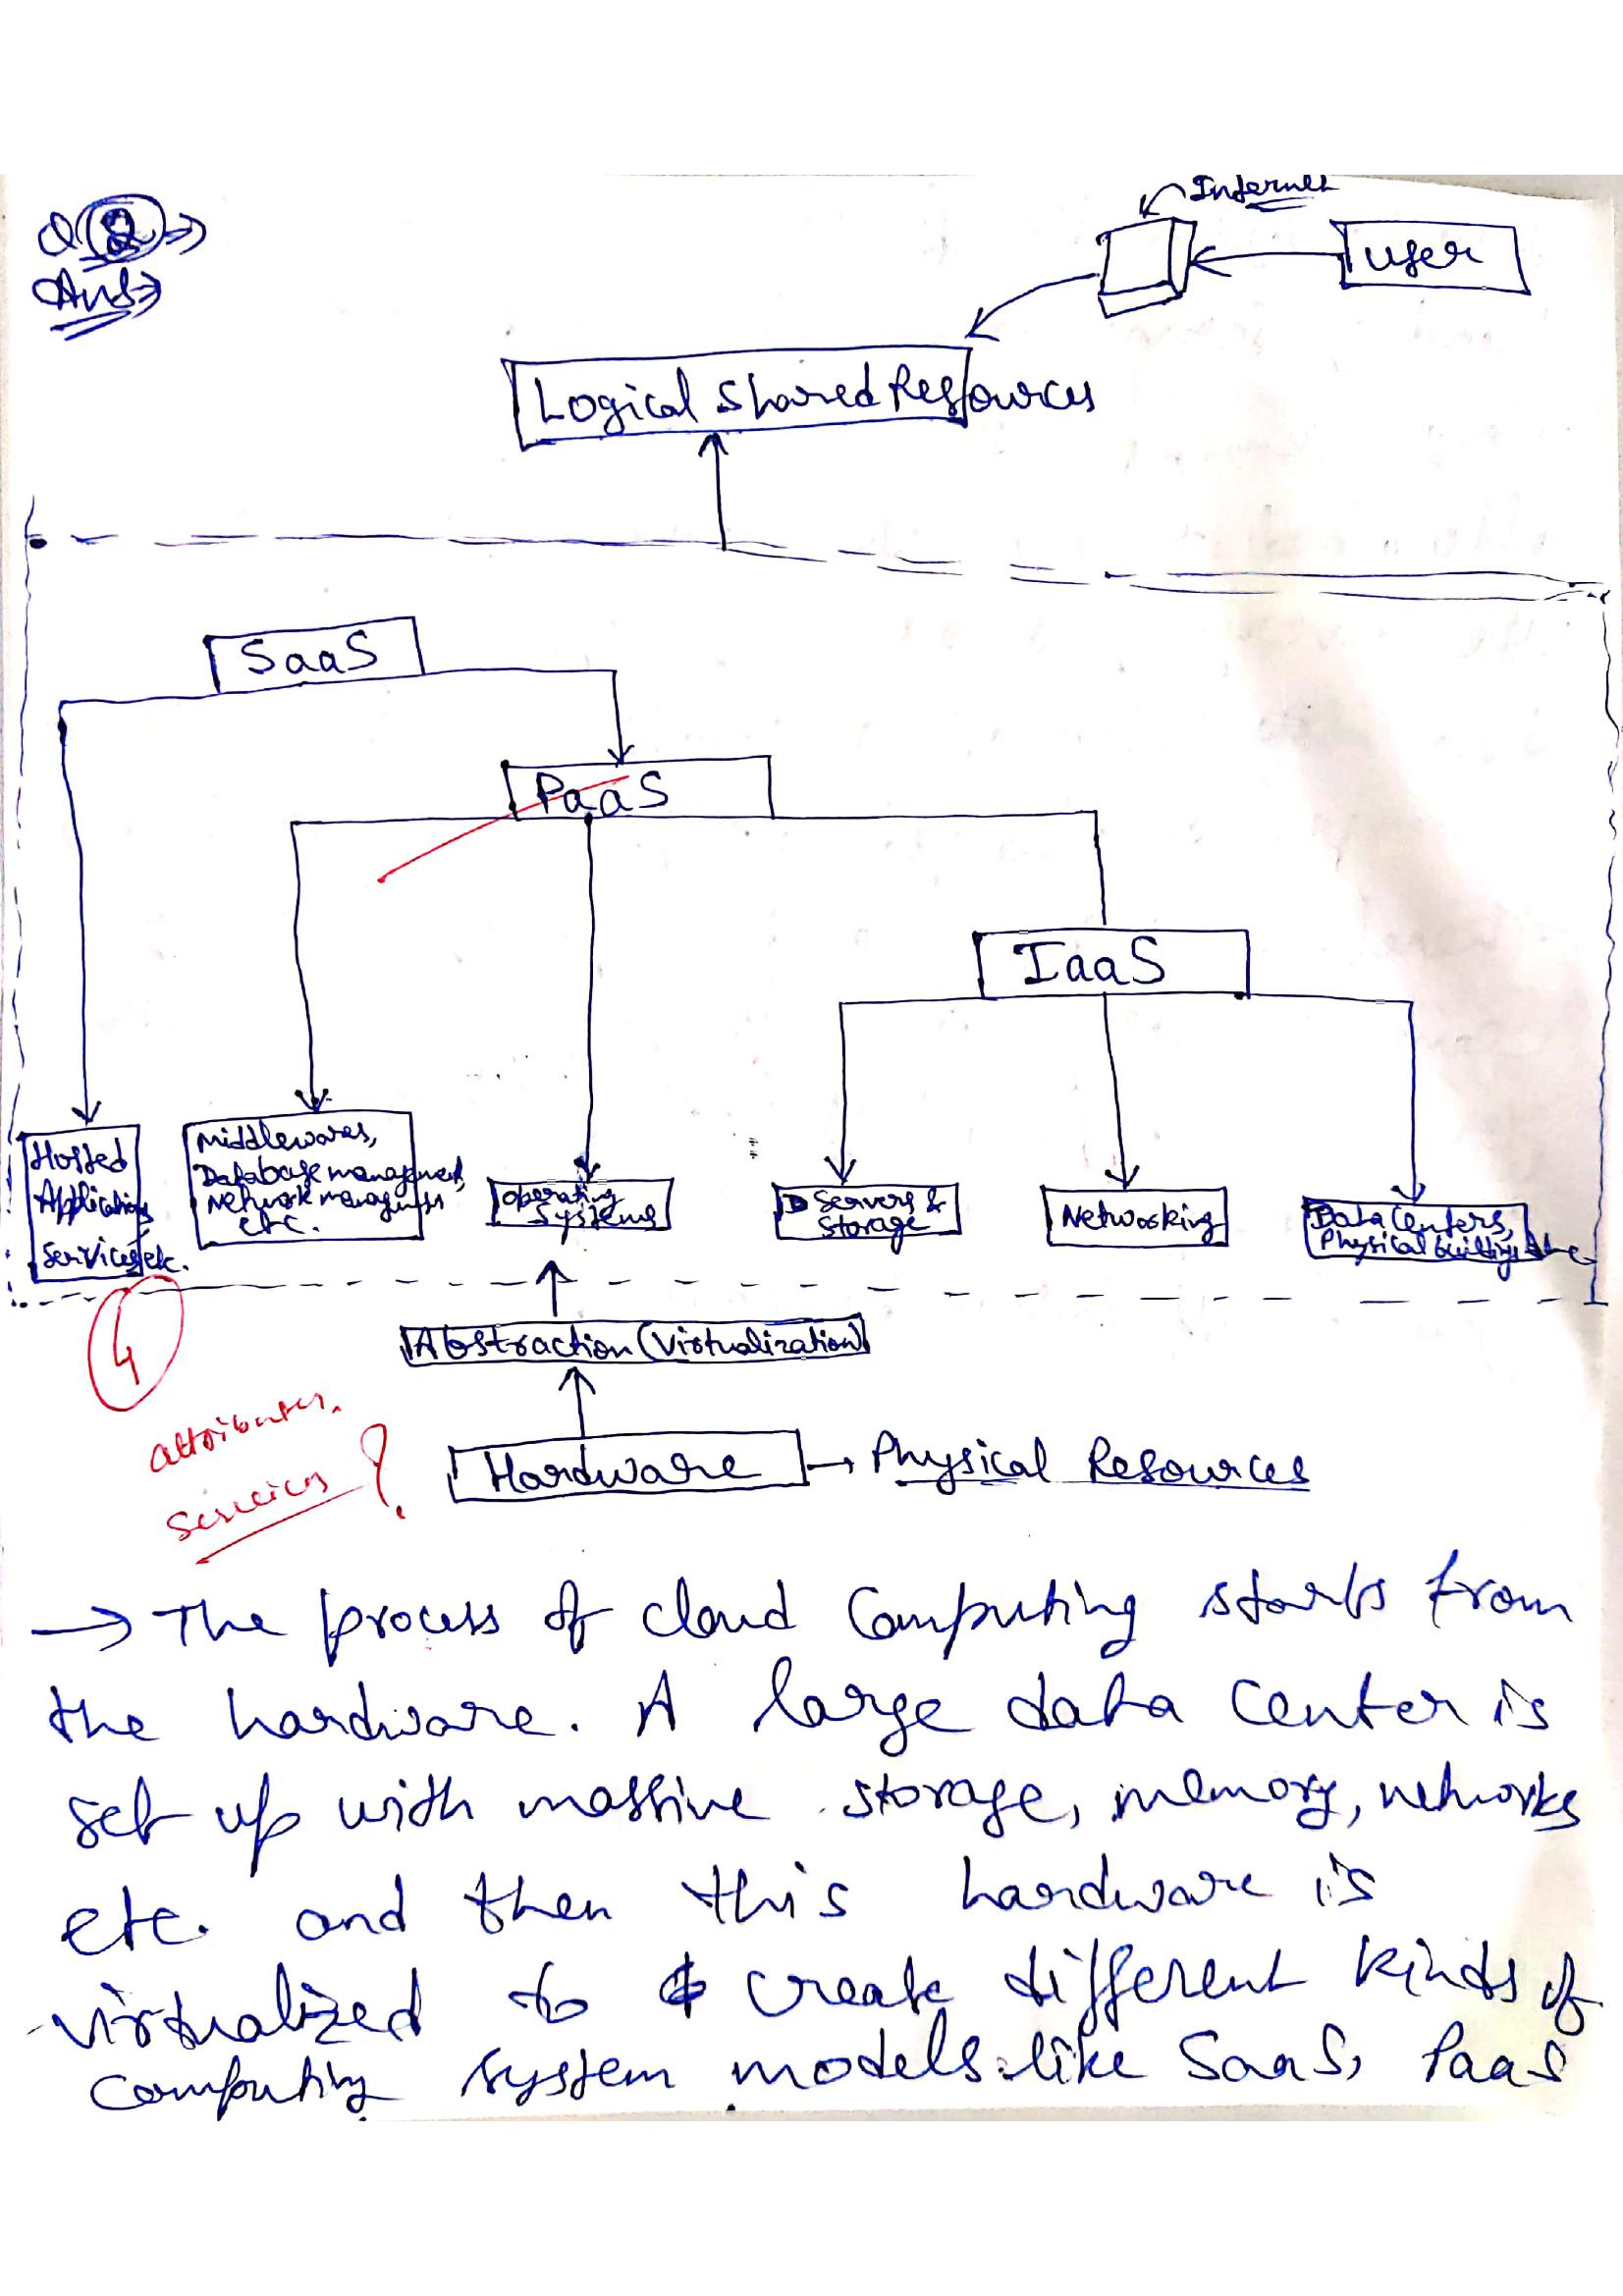 Q 2 →
Ans →
Internet
User
Logical Shared Resources
SaaS
PaaS
IaaS
Hosted
Applications
Services etc.
Middlewares,
Database management,
Network management
etc.
Operating
Systems
Servers &
Storage
Networking
Data Centers,
Physical building etc
4
Abstraction (Virtualization)
attributes.
services ?
Hardware → Physical Resources
→ The process of cloud Computing starts from
the hardware. A large data center is
set up with massive storage, memory, networks
etc. and then this hardware is
virtualized to create different kinds of
computing system models like SaaS, PaaS